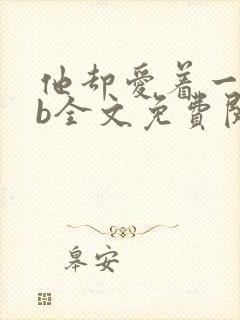 他却爱着一
b全文免費阅
皋安